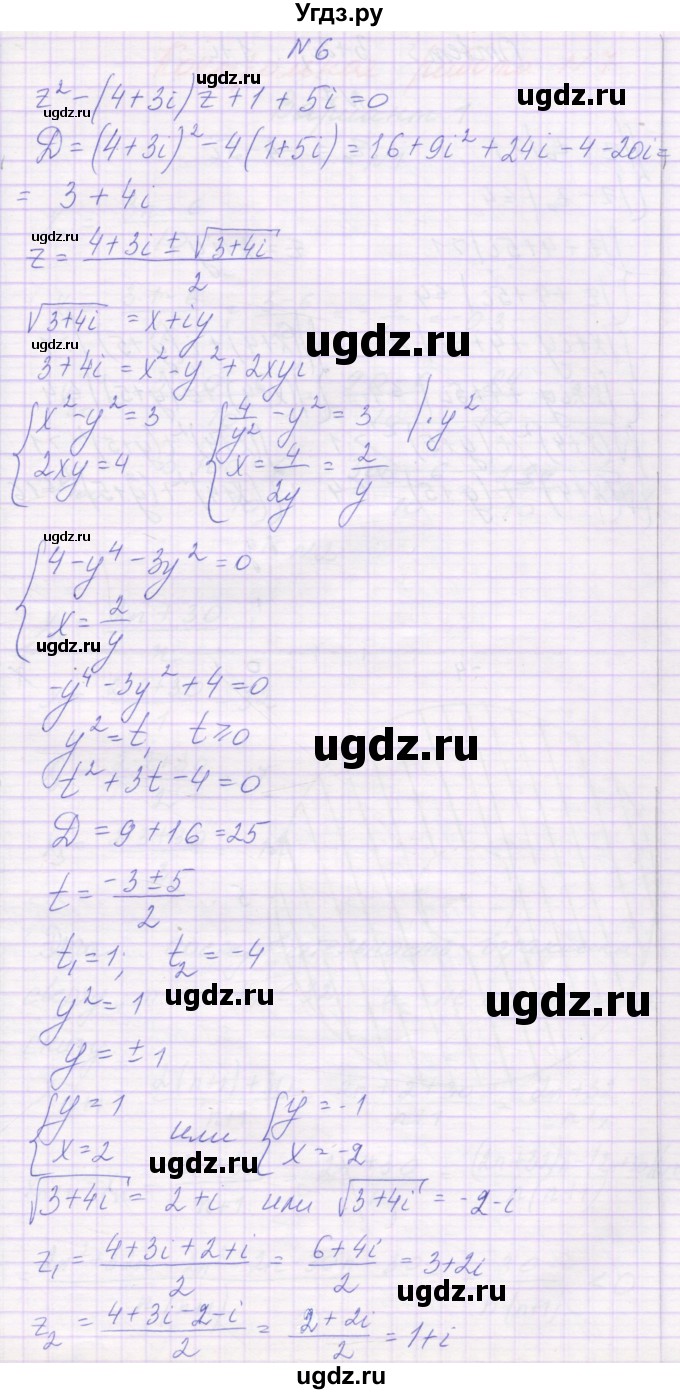 Угдз.ру
N 6
z² - (4+3i)z + 1 + 5i = 0
ugdz.ru ugdz.ru
D = (4+3i)² - 4(1+5i) = 16 + 9i² + 24i - 4 - 20i =
= 3 + 4i
ugdz.ru
z = (4+3i ± √(3+4i))/2
√(3+4i) = x+iy
ugdz.ru ugdz.ru
3+4i = x² - y² + 2xyi
{ x² - y² = 3 { 4/y² - y² = 3 | · y²
2xy = 4 x = 4/2y = 2/y
ugdz.ru
{ 4 - y⁴ - 3y² = 0
x = 2/y
ugdz.ru
-y⁴ - 3y² + 4 = 0
y² = t, t ≥ 0
ugdz.ru
t² + 3t - 4 = 0
D = 9 + 16 = 25
t = (-3 ± 5)/2
t₁ = 1; t₂ = -4
y² = 1
ugdz.ru ugdz.ru
y = ± 1
{ y = 1 или { y = -1
x = 2 x = -2
ugdz.ru
√(3+4i) = 2+i или √(3+4i) = -2-i
z₁ = (4+3i+2+i)/2 = (6+4i)/2 = 3+2i
ugdz.ru
z₂ = (4+3i-2-i)/2 = (2+2i)/2 = 1+i
ugdz.ru